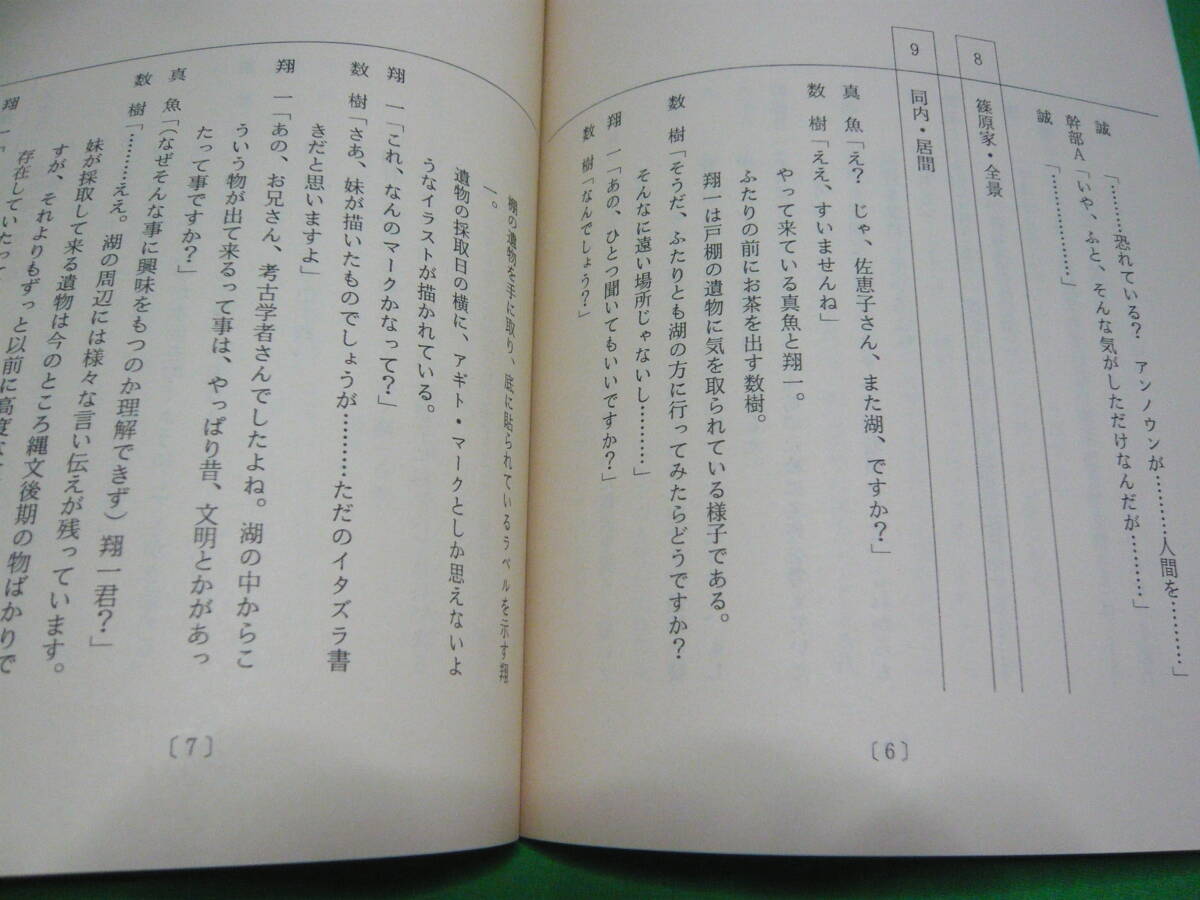 誠「………恐れている？　アンノウンが…………人間を………」
幹部A「いや、ふと、そんな気がしただけなんだが………」
誠「………………」
8　篠原家・全景
9　同内・居間
真　魚「え？　じゃ、佐恵子さん、また湖、ですか？」
数　樹「ええ、すいませんね」
やって来ている真魚と翔一。
ふたりの前にお茶を出す数樹。
翔一は戸棚の遺物に気を取られている様子である。
数　樹「そうだ、ふたりとも湖の方に行ってみたらどうですか？
そんなに遠い場所じゃないし…………」
翔　一「あの、ひとつ聞いてもいいですか？」
数　樹「なんでしょう？」
〔6〕
棚の遺物を手に取り、底に貼られているラベルを示す翔
一。
遺物の採取日の横に、アギト・マークとしか思えないよ
うなイラストが描かれている。
翔　一「これ、なんのマークかなって？」
数　樹「さあ、妹が描いたものでしょうが…………ただのイタズラ書
きだと思いますよ」
翔　一「あの、お兄さん、考古学者さんでしたよね。湖の中からこ
ういう物が出て来るって事は、やっぱり昔、文明とかがあっ
たって事ですか？」
真　魚「（なぜそんな事に興味をもつのか理解できず）翔一君？」
数　樹「………ええ。湖の周辺には様々な言い伝えが残っています。
妹が採取して来る遺物は今のところ縄文後期の物ばかりで
すが、それよりもずっと以前に高度な
存在していたって
翔　一「
〔7〕